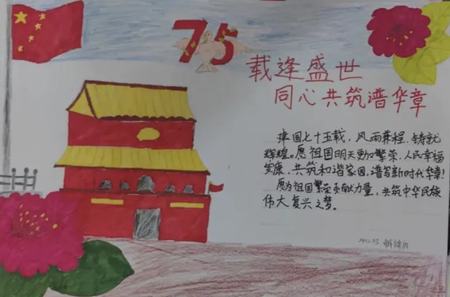 75
载逢盛世
同心共筑谱华章
建国七十五载，风雨兼程，铸就
辉煌。愿祖国明天更加繁荣，人民幸福
安康，共筑和谐家园，谱写新时代华章！
愿为祖国繁荣贡献力量，共筑中华民族
伟大复兴之梦。